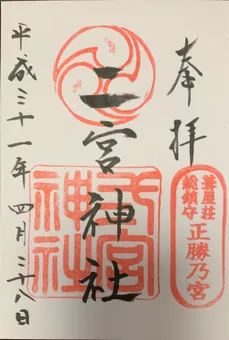 奉拝
二宮神社
二宮神社
葺屋荘
総鎮守
正勝乃宮
平成三十一年四月二十八日